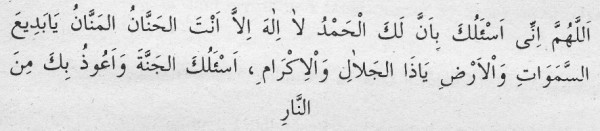 اَللَّهُمَّ اِنِّى اَسْئَلُكَ بِاَنَّ لَكَ الْحَمْدُ لاَ اِلٰهَ اِلاَّ اَنْتَ الْحَنَّانُ الْمَنَّانُ يَابَدِيعَ
السَّمَوَاتِ وَالْاَرْضِ يَاذَا الْجَلاَلِ وَالْاِكْرَامِ، اَسْئَلُكَ الْجَنَّةَ وَاَعُوذُ بِكَ مِنَ
النَّارِ